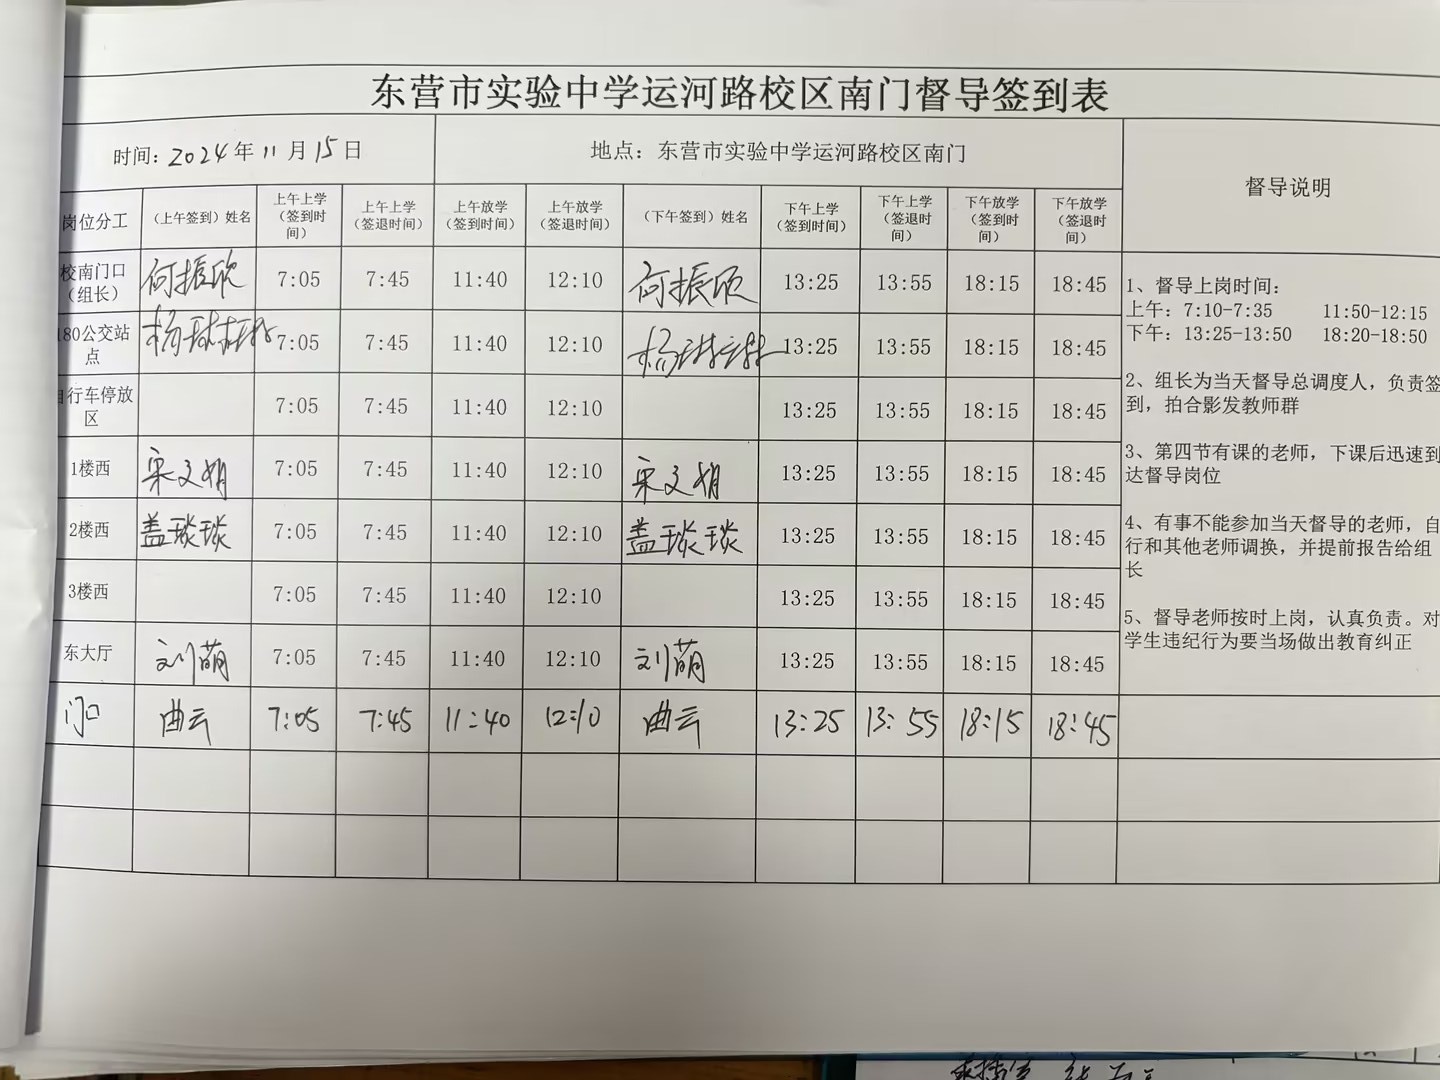 东营市实验中学运河路校区南门督导签到表
时间：2024年11月15日 地点：东营市实验中学运河路校区南门 督导说明
岗位分工 （上午签到）姓名 上午上学（签到时间） 上午上学（签退时间） 上午放学（签到时间） 上午放学（签退时间） （下午签到）姓名 下午上学（签到时间） 下午上学（签退时间） 下午放学（签到时间） 下午放学（签退时间）
校南门口（组长） 何振欣 7:05 7:45 11:40 12:10 何振欣 13:25 13:55 18:15 18:45
180公交站点 杨琳琳 7:05 7:45 11:40 12:10 杨琳琳 13:25 13:55 18:15 18:45
自行车停放区 7:05 7:45 11:40 12:10 13:25 13:55 18:15 18:45
1楼西 宋文娟 7:05 7:45 11:40 12:10 宋文娟 13:25 13:55 18:15 18:45
2楼西 盖琰琰 7:05 7:45 11:40 12:10 盖琰琰 13:25 13:55 18:15 18:45
3楼西 7:05 7:45 11:40 12:10 13:25 13:55 18:15 18:45
东大厅 刘萌 7:05 7:45 11:40 12:10 刘萌 13:25 13:55 18:15 18:45
门口 曲云 7:05 7:45 11:40 12:10 曲云 13:25 13:55 18:15 18:45
1、督导上岗时间：
上午：7:10-7:35 11:50-12:15
下午：13:25-13:50 18:20-18:50
2、组长为当天督导总调度人，负责签
到，拍合影发教师群
3、第四节有课的老师，下课后迅速到
达督导岗位
4、有事不能参加当天督导的老师，自
行和其他老师调换，并提前报告给组
长
5、督导老师按时上岗，认真负责。对
学生违纪行为要当场做出教育纠正